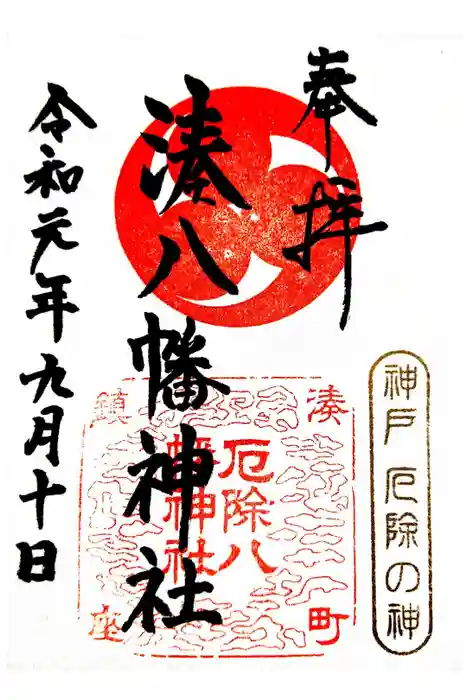 神戸 厄除の神
奉拝
湊八幡神社
令和元年九月十日
湊町
鎮座
厄除八
幡神社